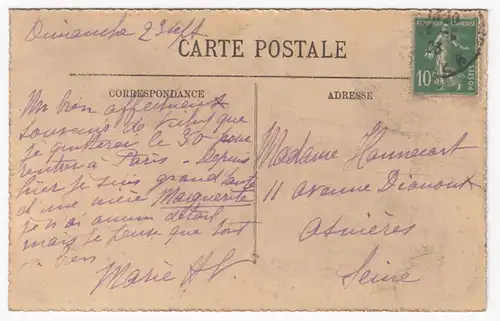 Dimanche 23 sept
CARTE POSTALE
RÉPUBLIQUE FRANÇAISE
10
POSTES
CORRESPONDANCE
ADRESSE
Un bien affectueux
souvenir de Vichy que
je quitterai le 30 pour
rentrer à Paris - Depuis
hier je suis grand tante
d'une mère Marguerite
je n'ai aucun détail
mais je pense que tout
va bien
Marie
Madame Hannecart
11 avenue
Asnières
Seine